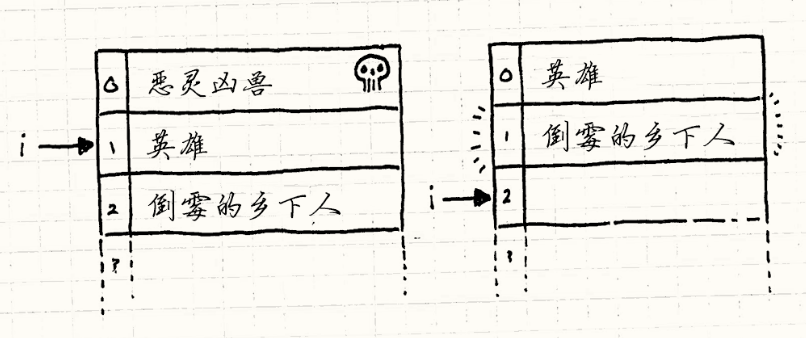 0 恶灵凶兽
i 1 英雄
2 倒霉的乡下人
?
0 英雄
1 倒霉的乡下人
i 2
?